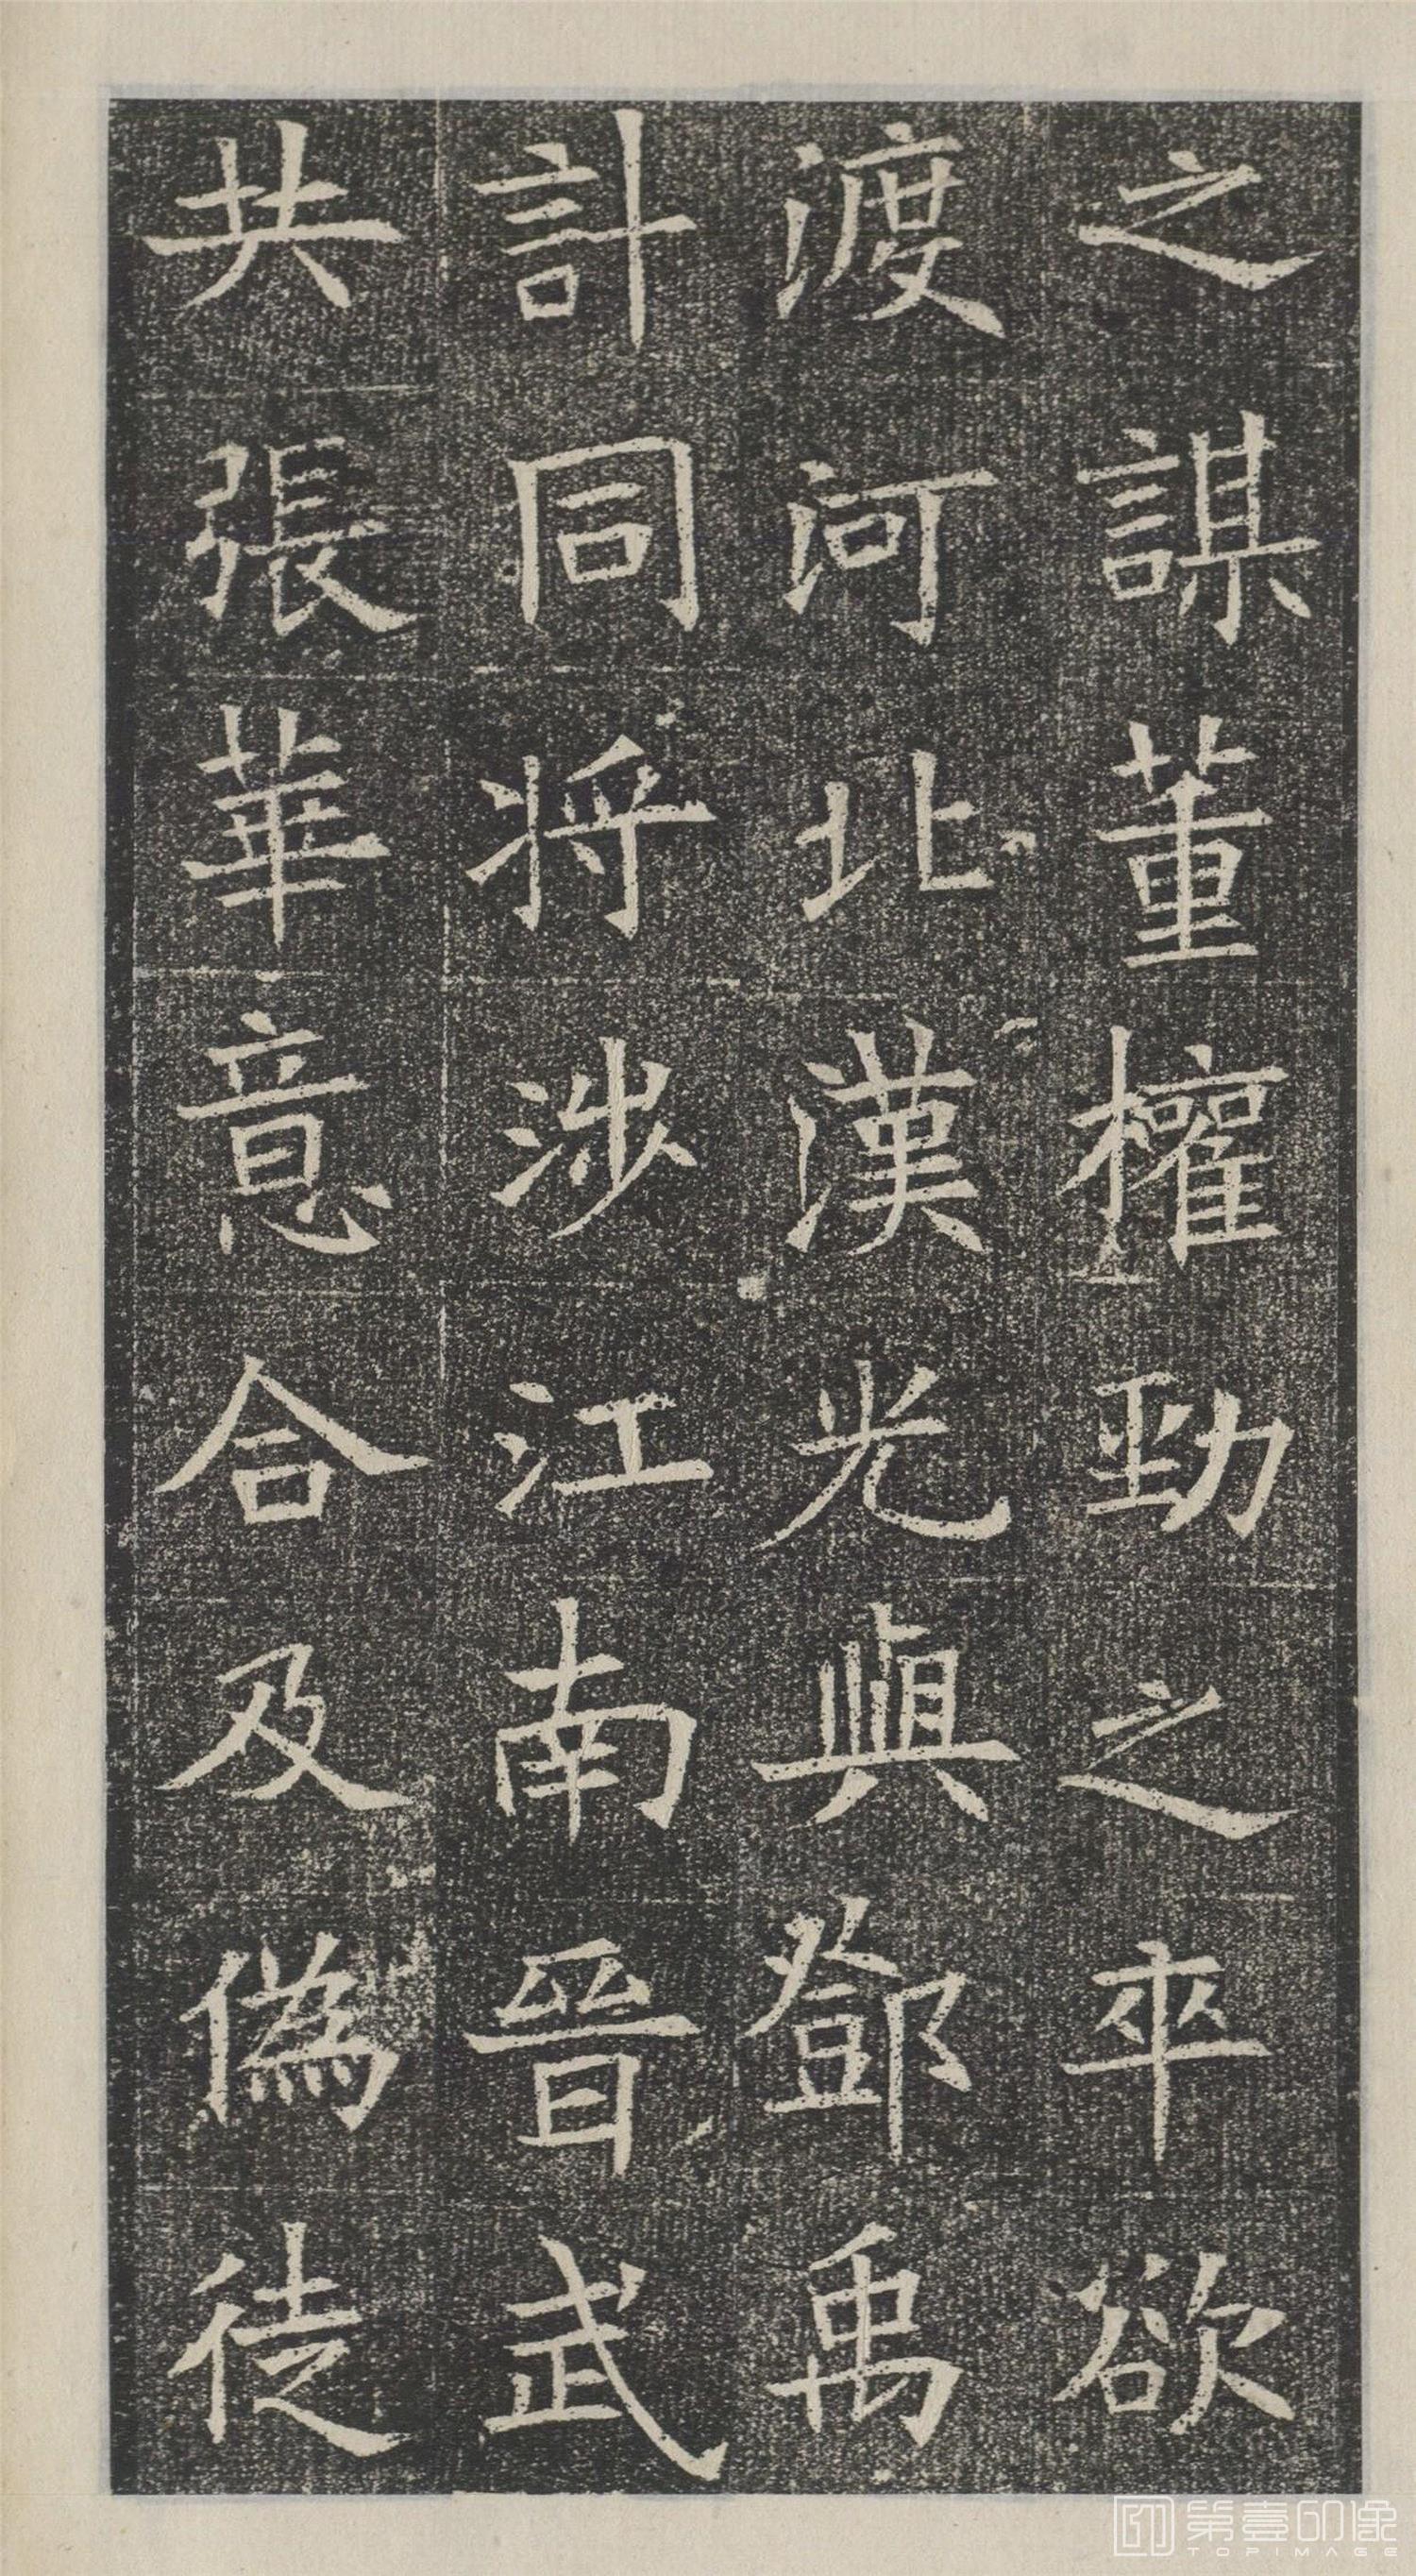 之謀董權勁之卒欲
渡河北漢光與鄧禹
計同將涉江南晉武
共張華意合及偽徒
第壹印像
TOPIMAGE